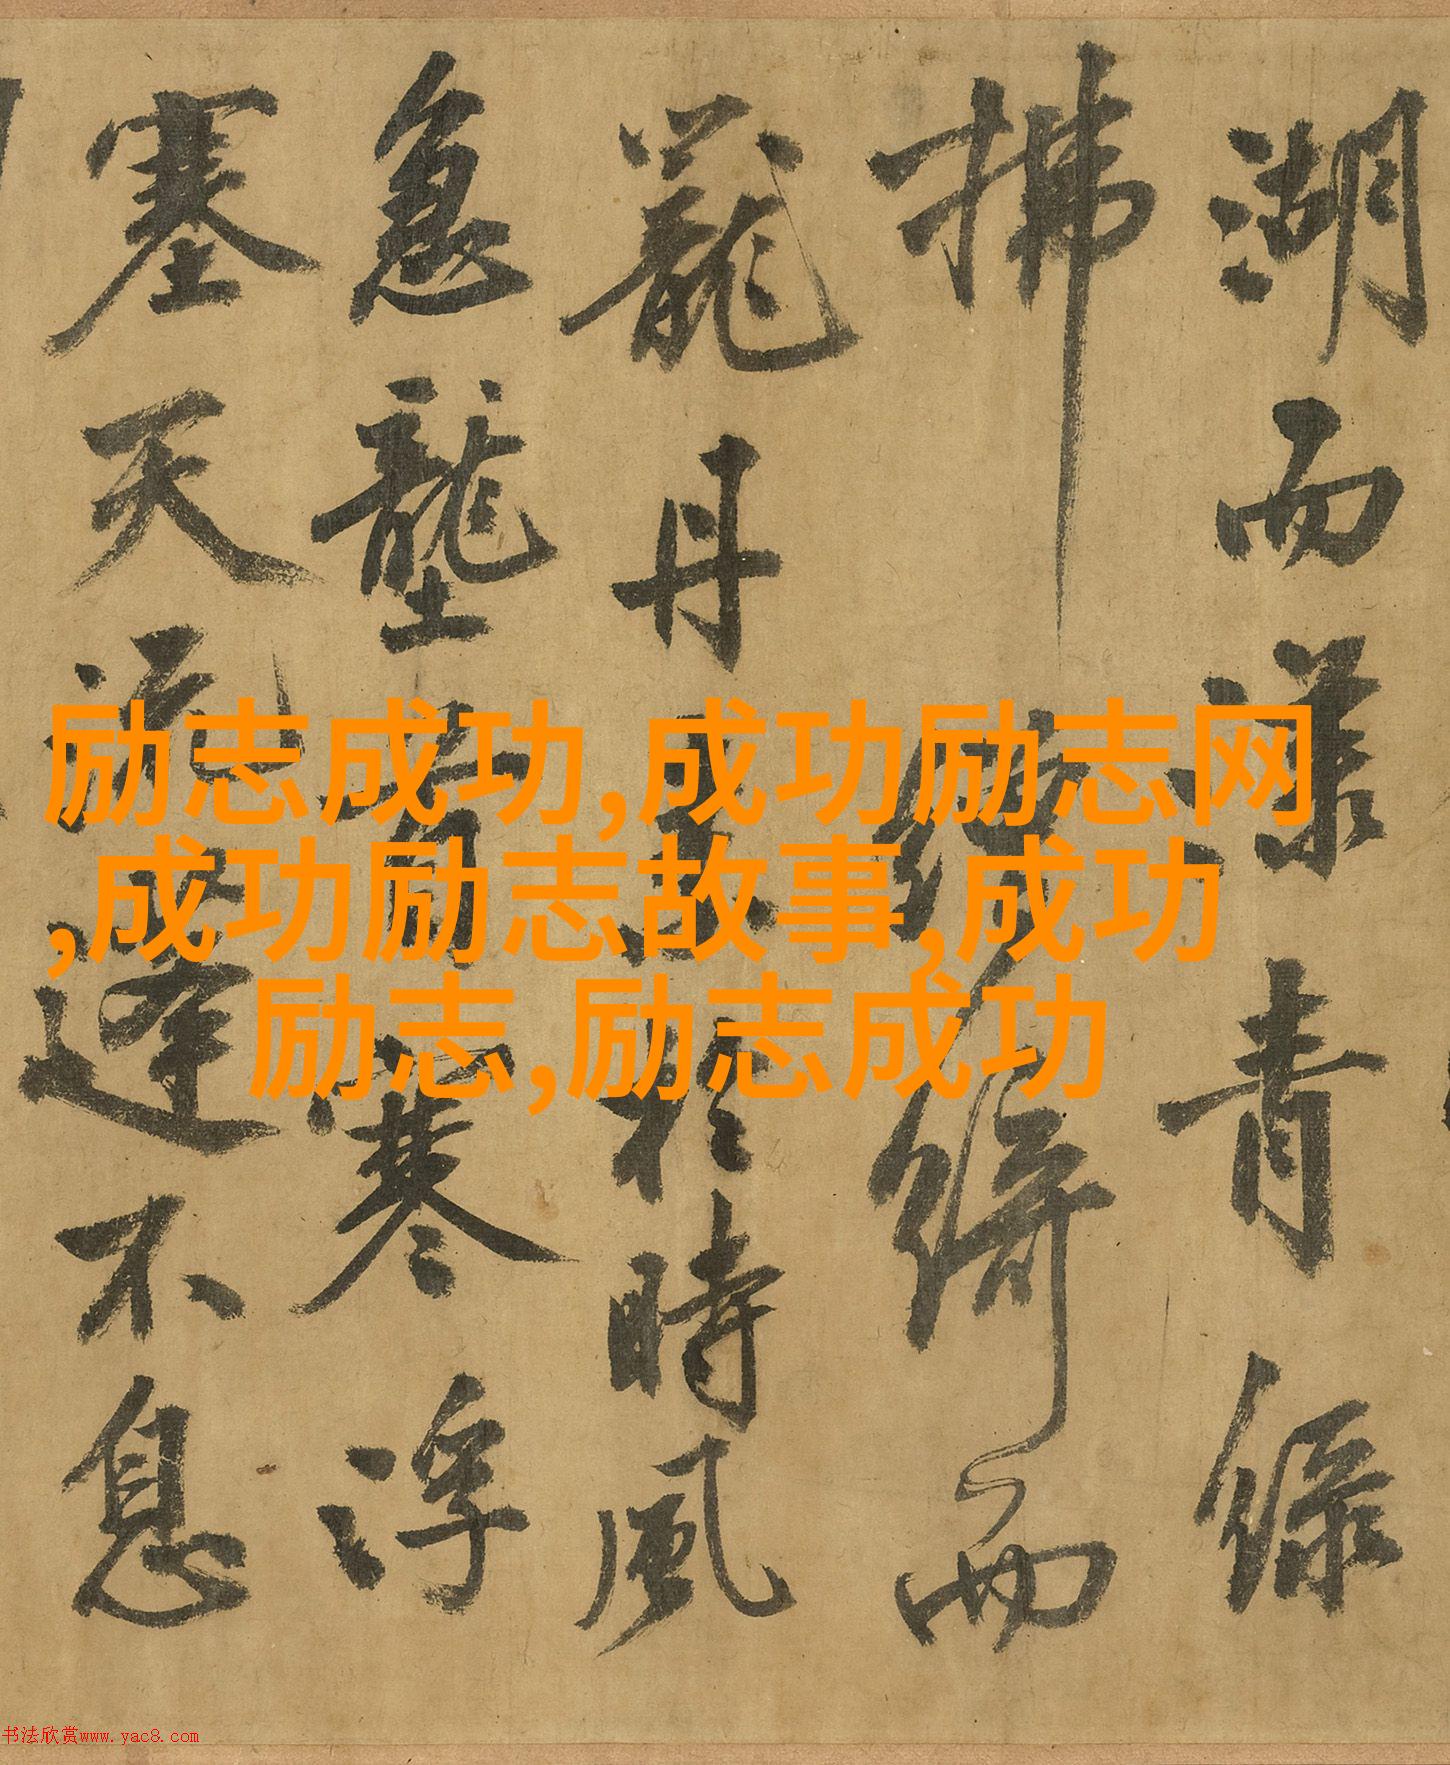 湖而漾青緑
拂綺而
蘢丹於時風
急壟寒浮
塞天流逢不息
励志成功,成功励志网
,成功励志故事,成功
励志,励志成功
书法欣赏www.yac8.com